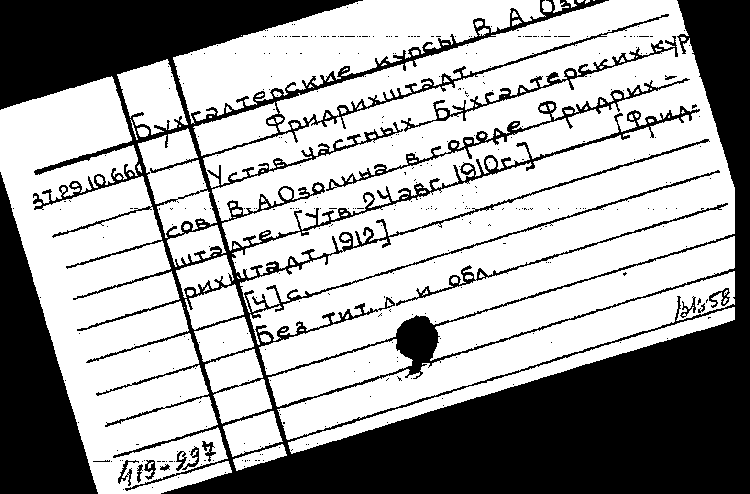 Бухгалтерские курсы В. А. Озо
Фридрихштадт.
37.29.10.660. Устав частных бухгалтерских кур
сов В. А. Озолина в городе Фридрих-
штадте. [Утв. 24 авг. 1910г.] [Фрид-
рихштадт, 1912]
[4] с.
Без тит. л. и обл.
419-997